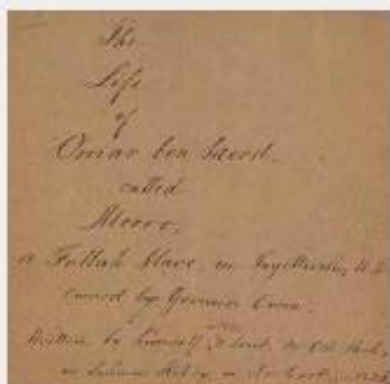 The
Life
of
Omar ben Saeed,
called
Morro,
a Fullah Slave, in Fayetteville, N.C.
Owned by Governor Owen.
Written by himself in
in